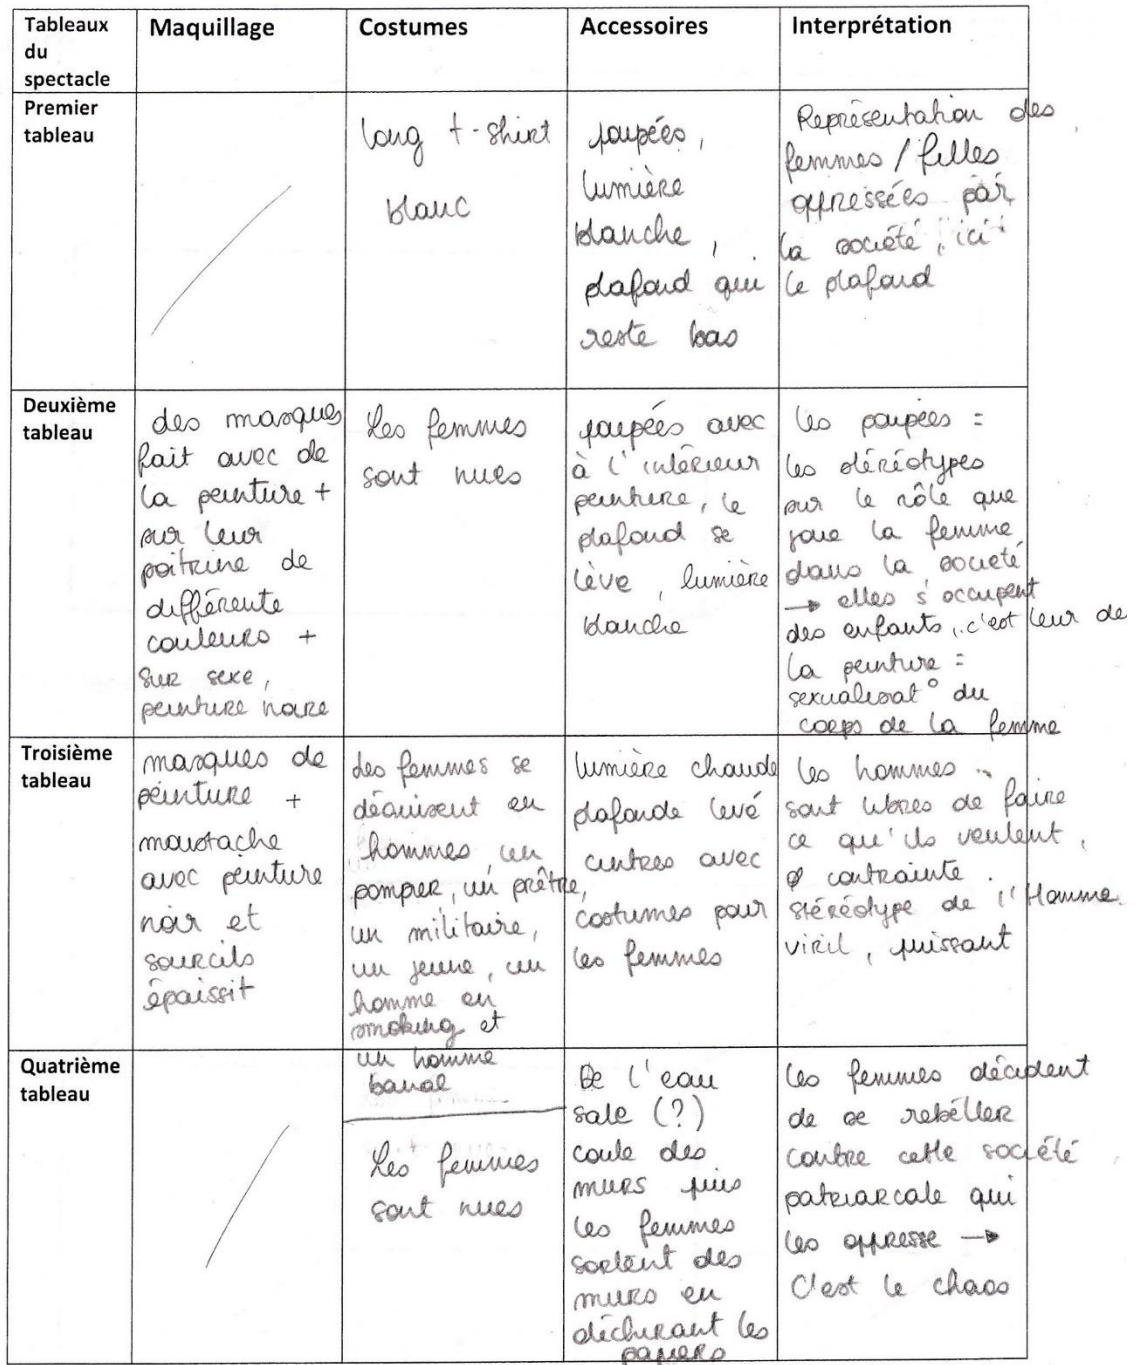 Tableaux
du
spectacle
Maquillage
Costumes
Accessoires
Interprétation
Premier
tableau
long t-shirt
blanc
poupées,
lumière
blanche,
plafond qui
reste bas
Représentation des
femmes / filles
oppressées par
la société, ici
le plafond
Deuxième
tableau
des masques
fait avec de
la peinture +
sur leur
poitrine de
différente
couleurs +
sur sexe,
peinture noire
Les femmes
sont nues
poupées avec
à l'intérieur
peinture, le
plafond se
lève, lumière
blanche
les poupées =
les stéréotypes
sur le rôle que
joue la femme
dans la société
→ elles s'occupent
des enfants, c'est leur de
la peinture =
sexualisat° du
corps de la femme
Troisième
tableau
masques de
peinture +
moustache
avec peinture
noir et
sourcils
épaissit
Les femmes se
déguisent en
hommes, un
pompier, un prêtre,
un militaire,
un jeune, un
homme en
smoking et
un homme
banal
lumière chaude
plafonde levé
cintres avec
costumes pour
les femmes
les hommes
sont libres de faire
ce qu'ils veulent,
ø contrainte.
stéréotype de l'Homme
viril, puissant
Quatrième
tableau
Les femmes
sont nues
De l'eau
sale (?)
coule des
murs puis
les femmes
sortent des
murs en
déchirant les
papiers
les femmes décident
de se rebeller
contre cette société
patriarcale qui
les oppresse →
C'est le chaos